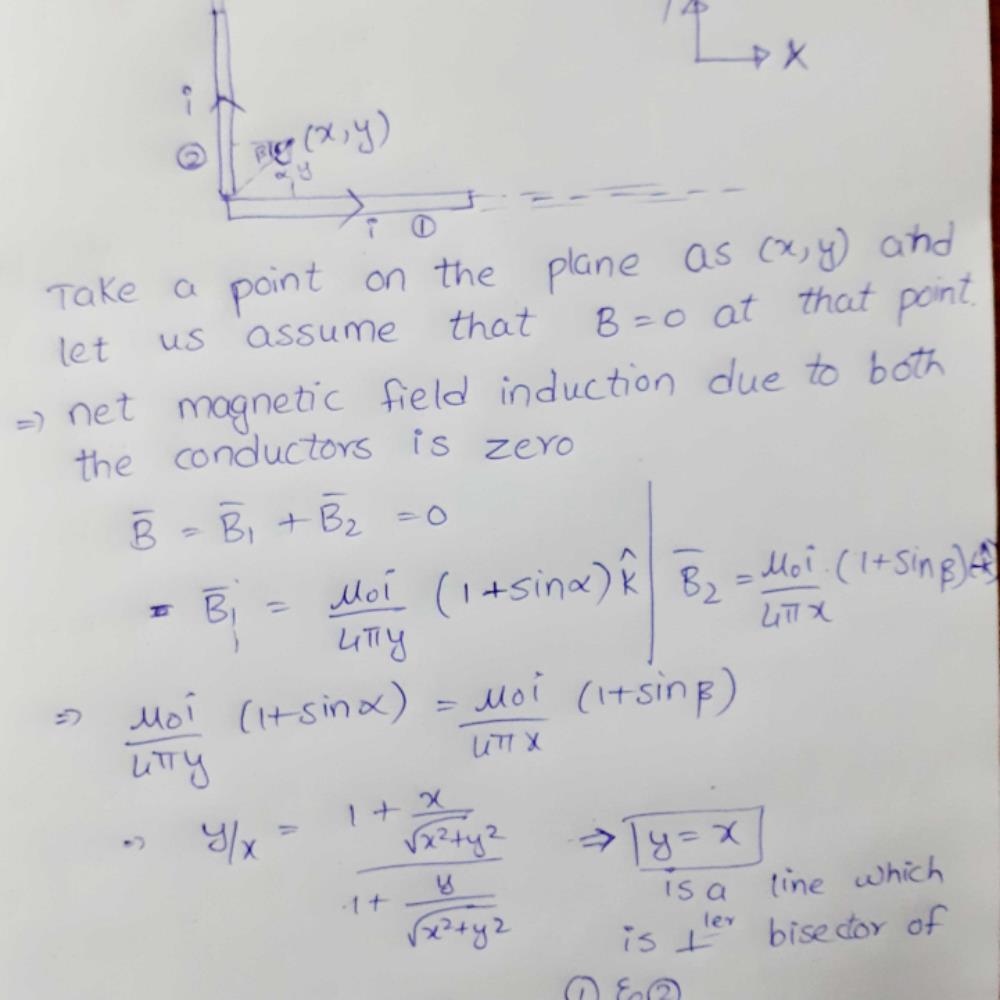 X
i
② (x,y)
α y
i ①
Take a point on the plane as (x,y) and
let us assume that B=0 at that point.
⇒ net magnetic field induction due to both
the conductors is zero
B̄ = B̄₁ + B̄₂ = 0
B̄₁ = μ₀i/4πy (1+sinα) k̂ | B̄₂ = μ₀i/4πx (1+sinβ)(-k̂)
⇒ μ₀i/4πy (1+sinα) = μ₀i/4πx (1+sinβ)
⇒ y/x = (1 + x/√x²+y²)/(1 + y/√x²+y²) ⇒ y = x
is a line which
is ⊥ler bisector of
① & ②